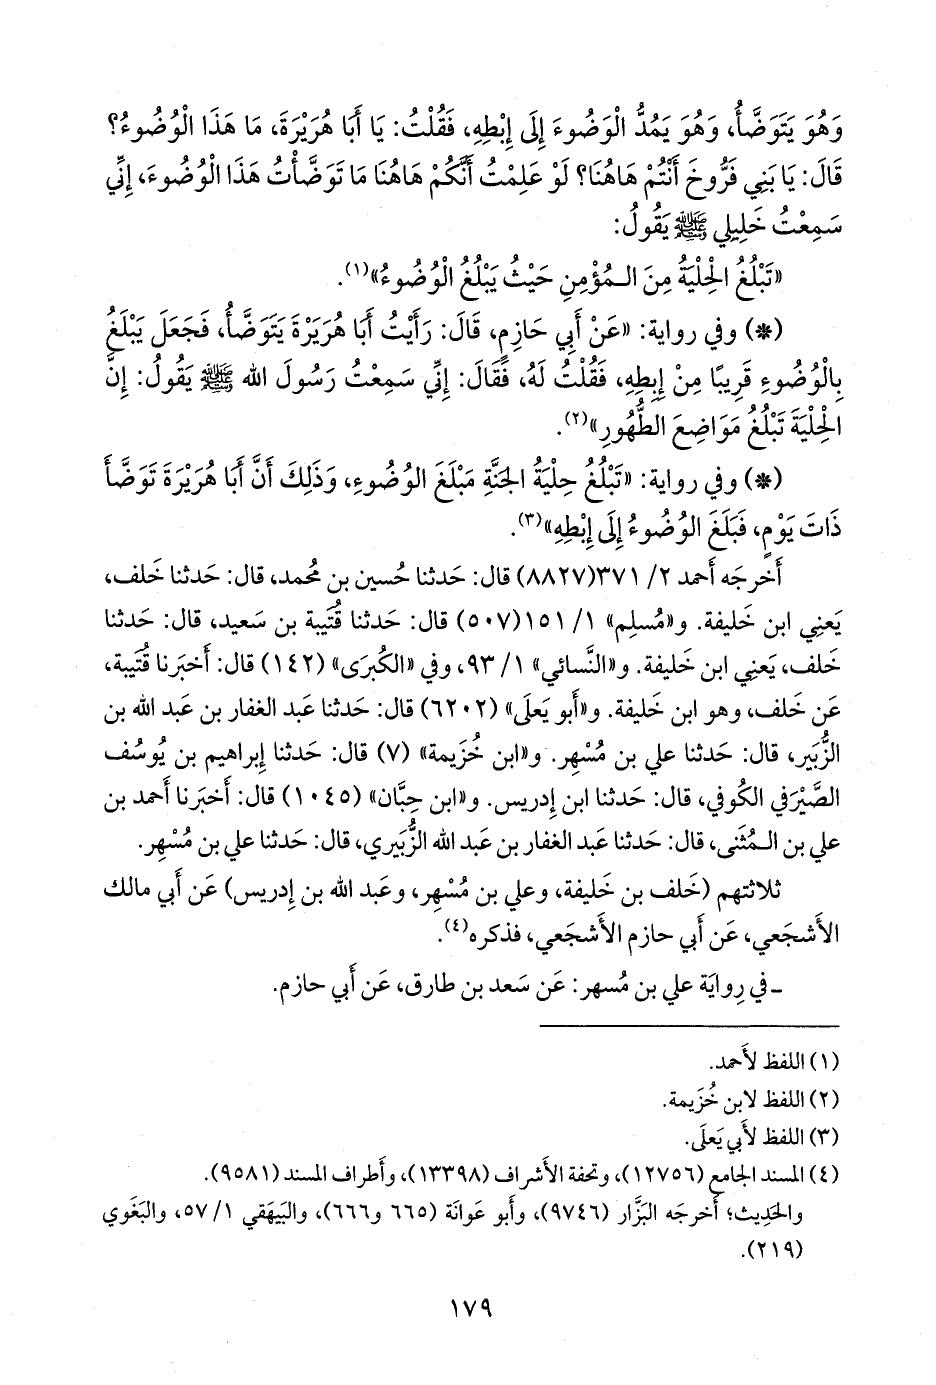 وَهُوَ يَتَوَضَّأُ، وَهُوَ يَمُدُّ الْوَضُوءَ إِلَى إِبْطِهِ، فَقُلْتُ: يَا أَبَا هُرَيْرَةَ، مَا هَذَا الْوُضُوءُ؟
قَالَ: يَا بَنِي فَرُّوخَ أَنْتُمْ هَاهُنَا؟ لَوْ عَلِمْتُ أَنَّكُمْ هَاهُنَا مَا تَوَضَّأْتُ هَذَا الْوُضُوءَ، إِنِّي
سَمِعْتُ خَلِيلِي ﷺ يَقُولُ:
«تَبْلُغُ الْحِلْيَةُ مِنَ الـمُؤْمِنِ حَيْثُ يَبْلُغُ الْوُضُوءُ»(١).
(*) وفي رواية: «عَنْ أَبِي حَازِمٍ، قَالَ: رَأَيْتُ أَبَا هُرَيْرَةَ يَتَوَضَّأُ، فَجَعَلَ يَبْلُغُ
بِالْوُضُوءِ قَرِيبًا مِنْ إِبِطِهِ، فَقُلْتُ لَهُ، فَقَالَ: إِنِّي سَمِعْتُ رَسُولَ الله ﷺ يَقُولُ: إِنَّ
الْحِلْيَةَ تَبْلُغُ مَوَاضِعَ الطُّهُورِ»(٢).
(*) وفي رواية: «تَبْلُغُ حِلْيَةُ الجَنَّةِ مَبْلَغَ الوُضُوءِ، وَذَلِكَ أَنَّ أَبَا هُرَيْرَةَ تَوَضَّأَ
ذَاتَ يَوْمٍ، فَبَلَغَ الوُضُوءُ إِلَى إِبْطِهِ»(٣).
أَخرجَه أَحمد ٢/ ٣٧١(٨٨٢٧) قال: حَدثنا حُسين بن مُحمد، قال: حَدثنا خَلف،
يَعنِي ابن خَليفة. و«مُسلِم» ١/ ١٥١(٥٠٧) قال: حَدثنا قُتَيبة بن سَعيد، قال: حَدثنا
خَلف، يَعنِي ابن خَليفة. و«النَّسائي» ١/ ٩٣، وفي «الكُبرَى» (١٤٢) قال: أَخبَرنا قُتَيبة،
عَن خَلف، وهو ابن خَليفة. و«أَبو يَعلَى» (٦٢٠٢) قال: حَدثنا عَبد الغفار بن عَبد الله بن
الزُّبَير، قال: حَدثنا علي بن مُسْهِر. و«ابن خُزَيمة» (٧) قال: حَدثنا إِبراهيم بن يُوسُف
الصَّيْرَفي الكُوفي، قال: حَدثنا ابن إِدريس. و«ابن حِبَّان» (١٠٤٥) قال: أَخبَرنا أَحمد بن
علي بن الـمُثَنى، قال: حَدثنا عَبد الغفار بن عَبد الله الزُّبَيري، قال: حَدثنا علي بن مُسْهِر.
ثلاثتهم (خَلف بن خَليفة، وعلي بن مُسْهِر، وعَبد الله بن إِدريس) عَن أَبي مالك
الأَشجَعي، عَن أَبي حازم الأَشجَعي، فذكره(٤).
ـ في رِوايَة علي بن مُسهر: عَن سَعد بن طارق، عَن أَبي حازم.
(١) اللفظ لأَحمد.
(٢) اللفظ لابن خُزَيمة.
(٣) اللفظ لأَبي يَعلَى.
(٤) المسند الجامع (١٢٧٥٦)، وتحفة الأَشراف (١٣٣٩٨)، وأَطراف المسند (٩٥٨١).
والحَدِيث؛ أَخرجَه البَزَّار (٩٧٤٦)، وأَبو عَوانَة (٦٦٥ و٦٦٦)، والبَيهَقي ١/ ٥٧، والبَغَوي
(٢١٩).
١٧٩